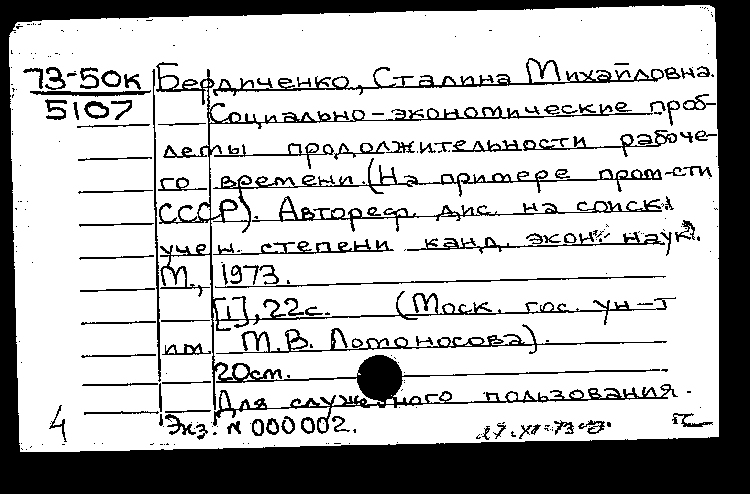 73-50к
5107
Бердиченко, Сталина Михайловна.
Социально-экономические проб-
лемы продолжительности рабоче-
го времени. (На примере пром-сти
СССР). Автореф. дис. на соиск.
учен. степени канд. экон. наук.
М., 1973.
[1], 22с. (Моск. гос. ун-т
им. М.В. Ломоносова).
20см.
Для служебного пользования.
Экз. № 000002.
4